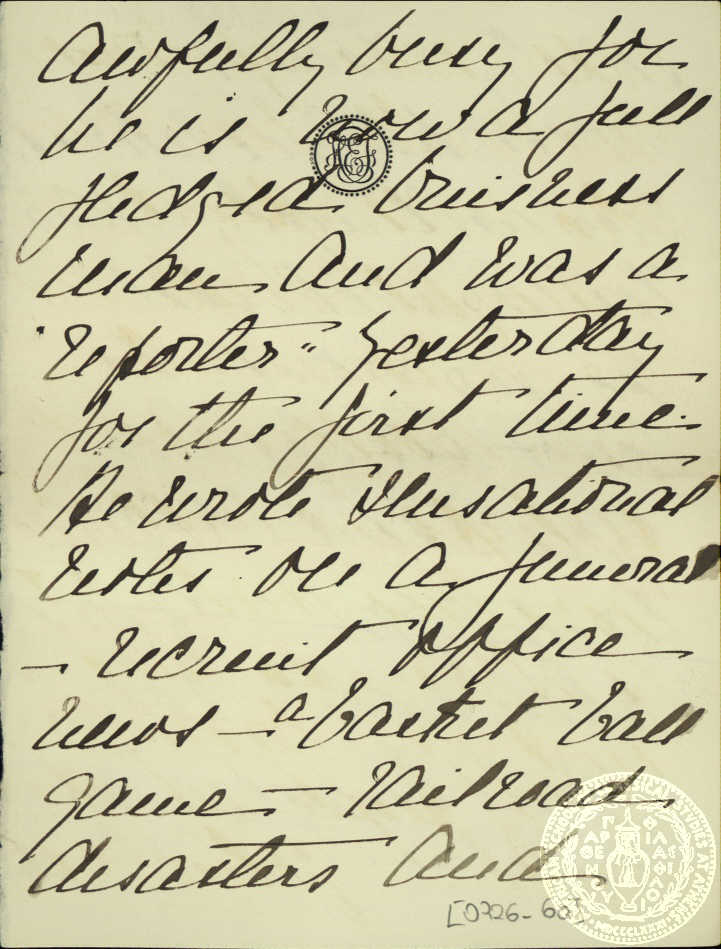 Awfully busy for
he is now a full
fledged buisness
man and was a
"reporter" yesterday
for the first time.
He wrote sensational
notes on a funeral
— recruit office
news — a basket ball
game — railroad
disasters and
[0726-60]